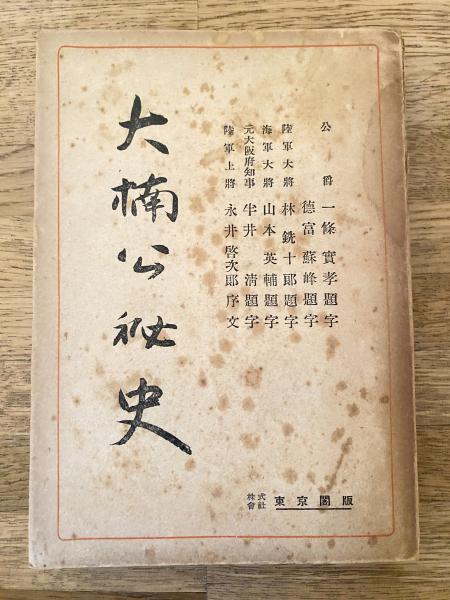 公爵 一條實孝題字
德富蘇峰題字
陸軍大將 林銑十郎題字
海軍大將 山本英輔題字
元大阪府知事 半井清題字
陸軍上將 永井啓次郎序文
大楠公祕史
株式會社 東京閣版